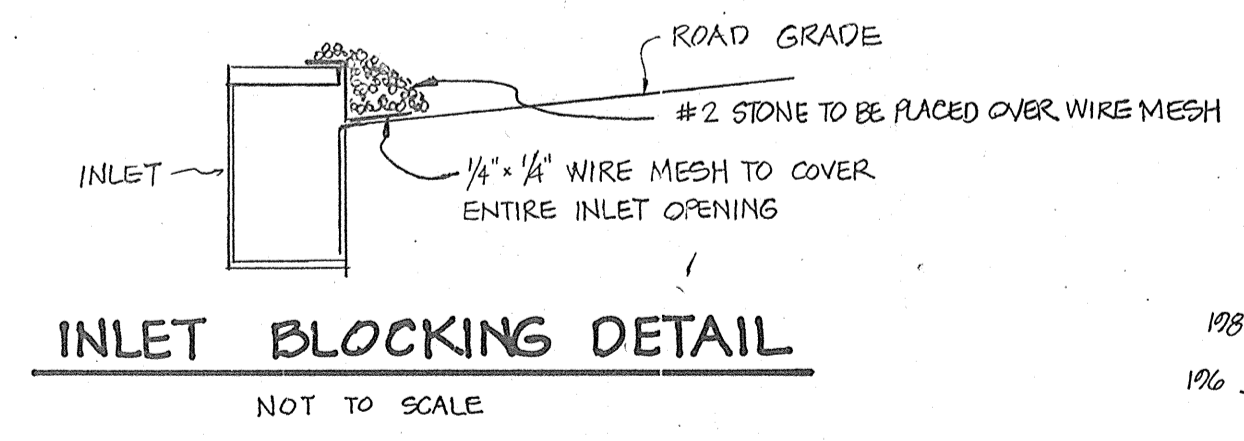 ROAD GRADE
#2 STONE TO BE PLACED OVER WIRE MESH
INLET
1/4" x 1/4" WIRE MESH TO COVER
ENTIRE INLET OPENING
INLET BLOCKING DETAIL
NOT TO SCALE
198
196